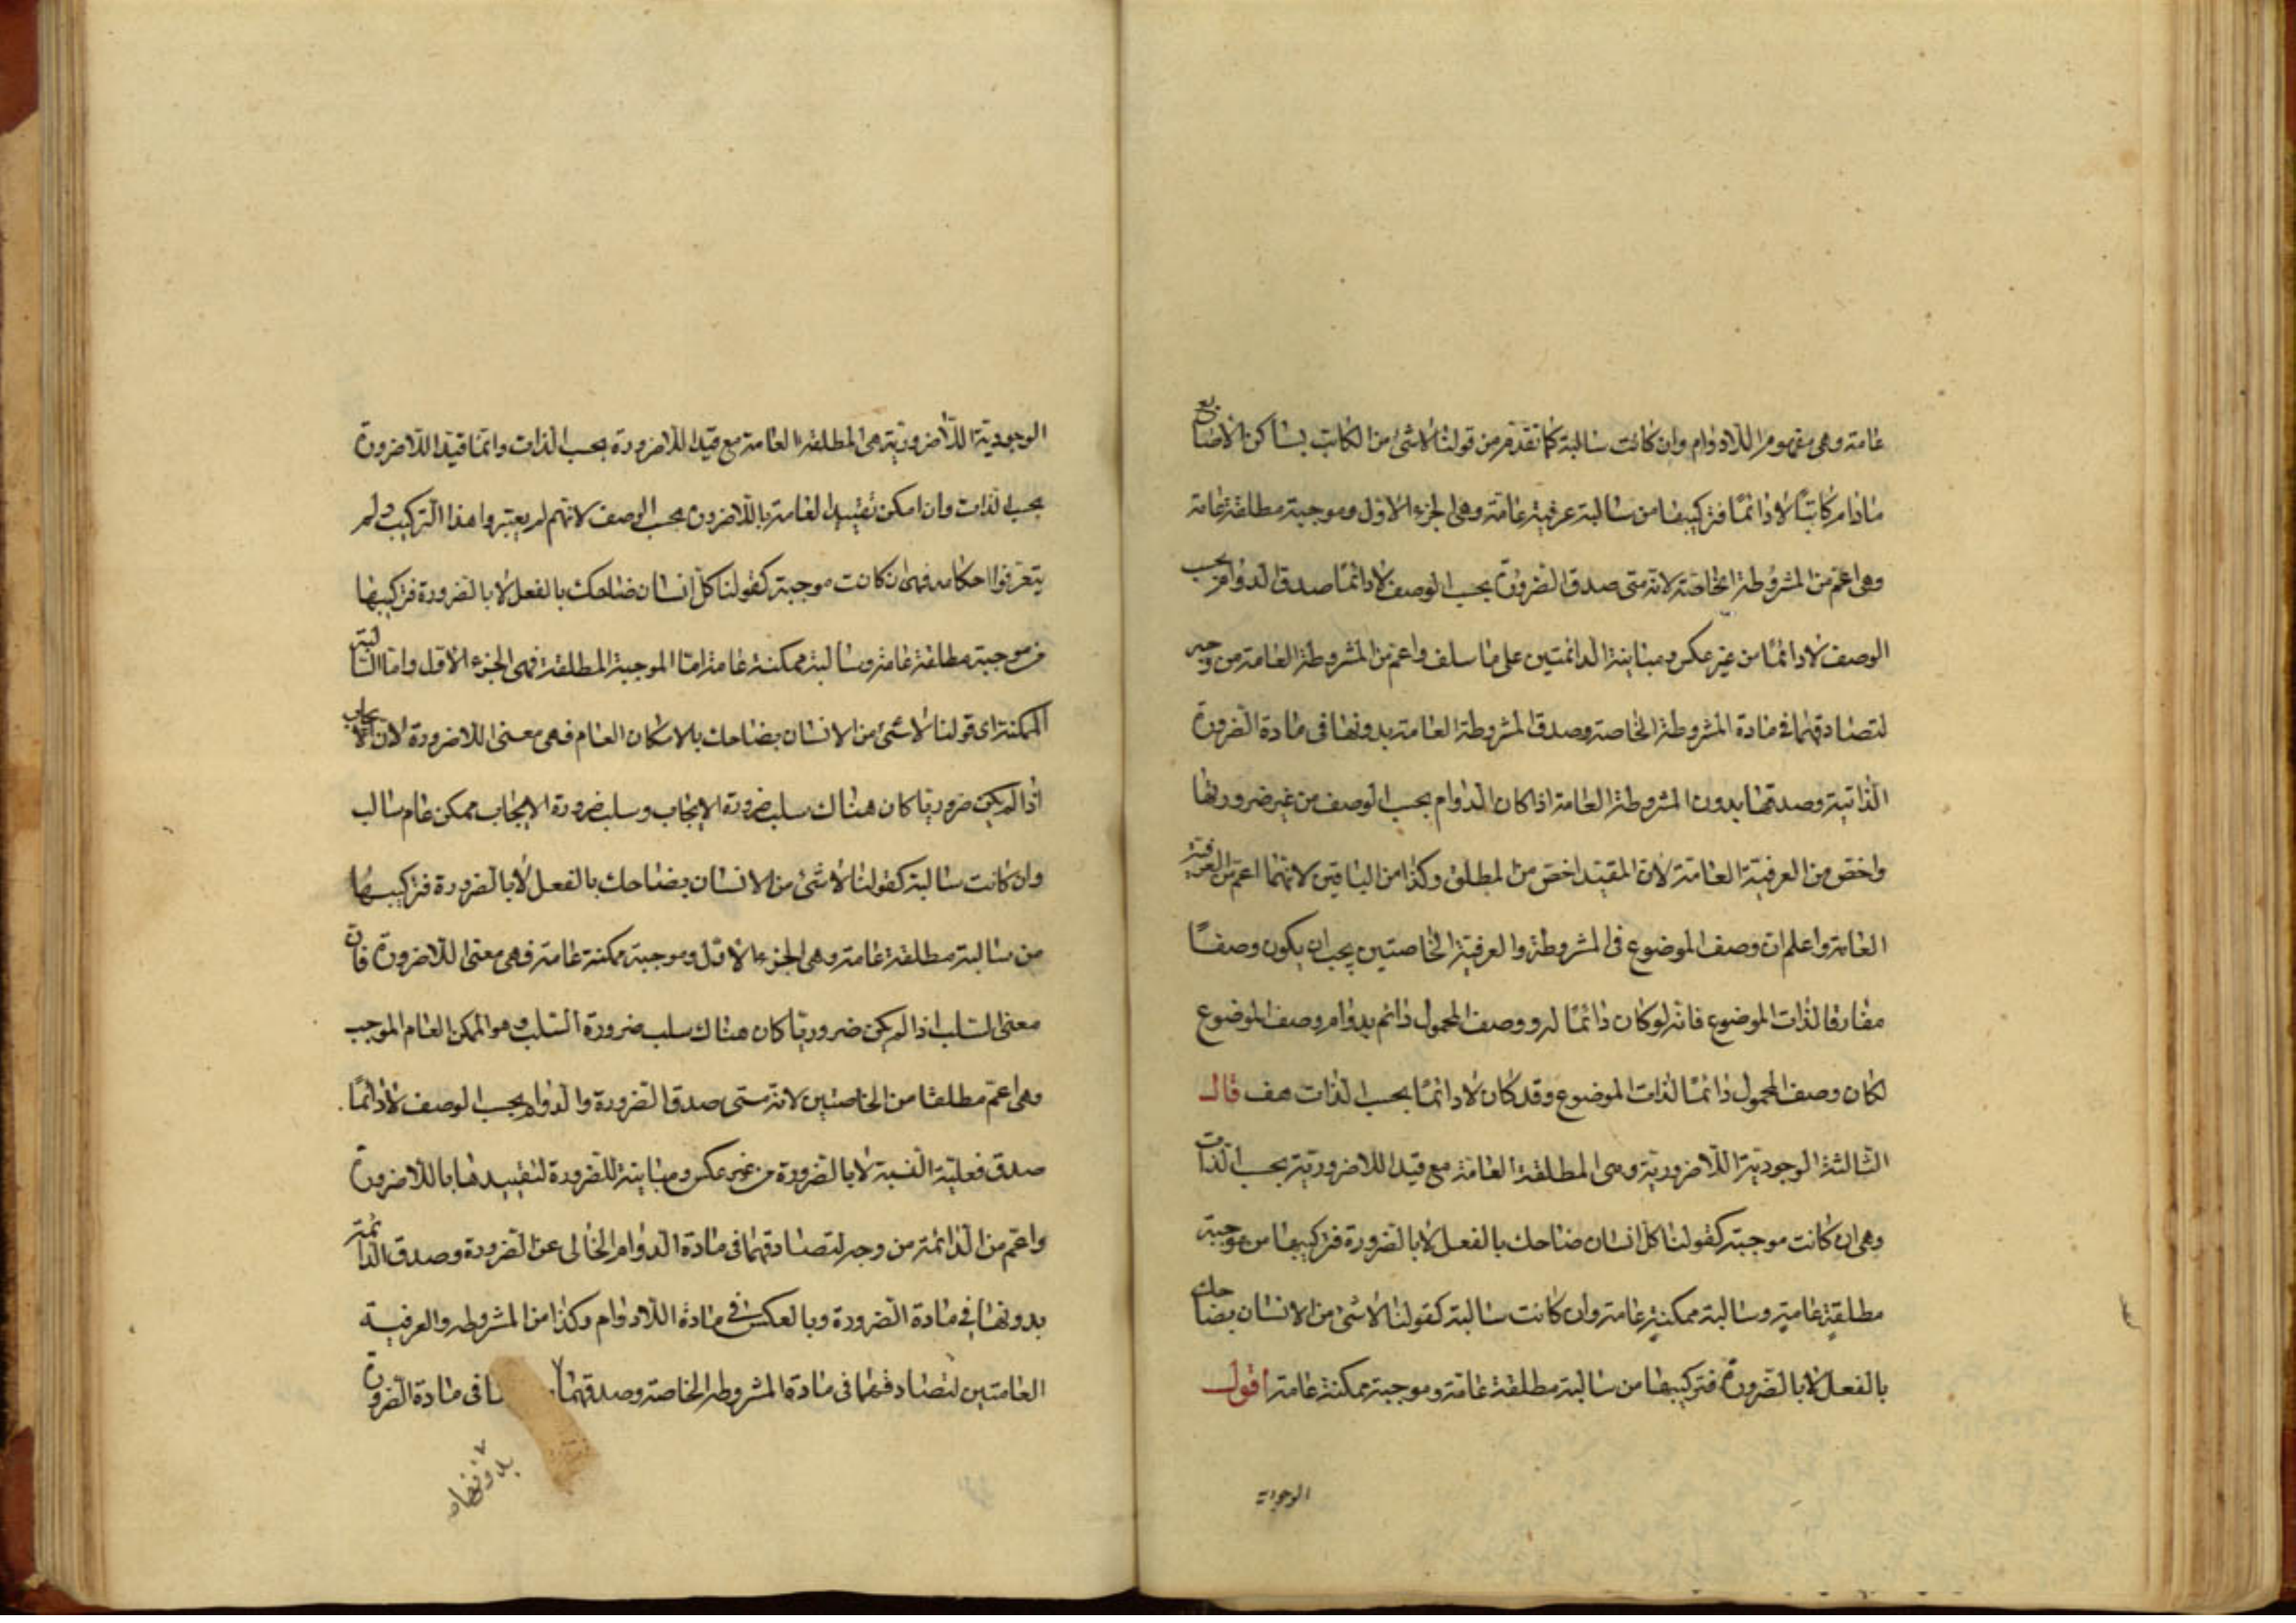 عامة وهى مفهوم اللادوام وان كانت سالبة كما تقدم من قولنا لاشئ من الكاتب بساكن الاصابع
مادام كاتبًا لا دائمًا فتركيبها من سالبة عرفية عامة وهى الجزء الاول وموجبة مطلقة عامة
وهى اعم من المشروطة الخاصة لانه متى صدق الضرورة بحسب الوصف لا دائمًا صدق الدوام بحسب
الوصف لا دائمًا من غير عكس ومباينة الدائمتين على ما سلف واعم من المشروطة العامة من وجه
لتصادقهما فى مادة المشروطة الخاصة وصدق المشروطة العامة بدونها فى مادة الضرورة
الذاتية وصدقها بدون المشروطة العامة اذا كان الدوام بحسب الوصف من غير ضرورتها
واخص من العرفية العامة لان المقيد اخص من المطلق وكذا من الباقيتين لانهما اعم من العرفية
العامة واعلم ان وصف الموضوع فى المشروطة والعرفية الخاصتين يجب ان يكون وصفًا
مفارقا لذات الموضوع فانه لو كان دائمًا له ووصف المحمول دائم بدوام وصف الموضوع
لكان وصف المحمول دائمًا لذات الموضوع وقد كان لا دائمًا بحسب الذات هف قال
الثالثة الوجودية اللاضرورية وهى المطلقة العامة مع قيد اللاضرورية بحسب الذات
وهى ان كانت موجبة كقولنا كل انسان ضاحك بالفعل لا بالضرورة فتركيبها من موجبة
مطلقة عامة وسالبة ممكنة عامة وان كانت سالبة كقولنا لاشئ من الانسان بضاحك
بالفعل لا بالضرورة فتركيبها من سالبة مطلقة عامة وموجبة ممكنة عامة اقول
الوجودية
الوجودية اللاضرورية هى المطلقة العامة مع قيد اللاضرورة بحسب الذات وانما قيد اللاضرورة
بحسب الذات وان امكن تقييد العامة باللاضرورة بحسب الوصف لانهم لم يعتبروا هذا التركيب ولم
يتعرفوا احكامه فهى ان كانت موجبة كقولنا كل انسان ضاحك بالفعل لا بالضرورة فتركيبها
من موجبة مطلقة عامة وسالبة ممكنة عامة اما الموجبة المطلقة فهى الجزء الاول واما السالبة
الممكنة اى قولنا لاشئ من الانسان بضاحك بالامكان العام فهى معنى اللاضرورة لان الايجاب
اذا لم يكن ضروريا كان هناك سلب ضرورة الايجاب وسلب ضرورة الايجاب ممكن عام سالب
وان كانت سالبة كقولنا لاشئ من الانسان بضاحك بالفعل لا بالضرورة فتركيبها
من سالبة مطلقة عامة وهى الجزء الاول وموجبة ممكنة عامة فهى معنى اللاضرورة فان
معنى السلب اذا لم يكن ضروريا كان هناك سلب ضرورة السلب وهو الممكن العام الموجب
وهى اعم مطلقا من الخاصتين لانه متى صدق الضرورة والدوام بحسب الوصف لا دائمًا
صدق فعلية النسبة لا بالضرورة من غير عكس ومباينة للضرورة لتقييدها باللاضرورة
واعم من الدائمة من وجه لتصادقهما فى مادة الدوام الخالى عن الضرورة وصدق الدائمة
بدونها فى مادة الضرورة وبالعكس فى مادة اللادوام وكذا من المشروطه والعرفية
العامتين لتصادقهما فى مادة المشروطه الخاصة وصدقهما فى مادة الضرورة
بدونها